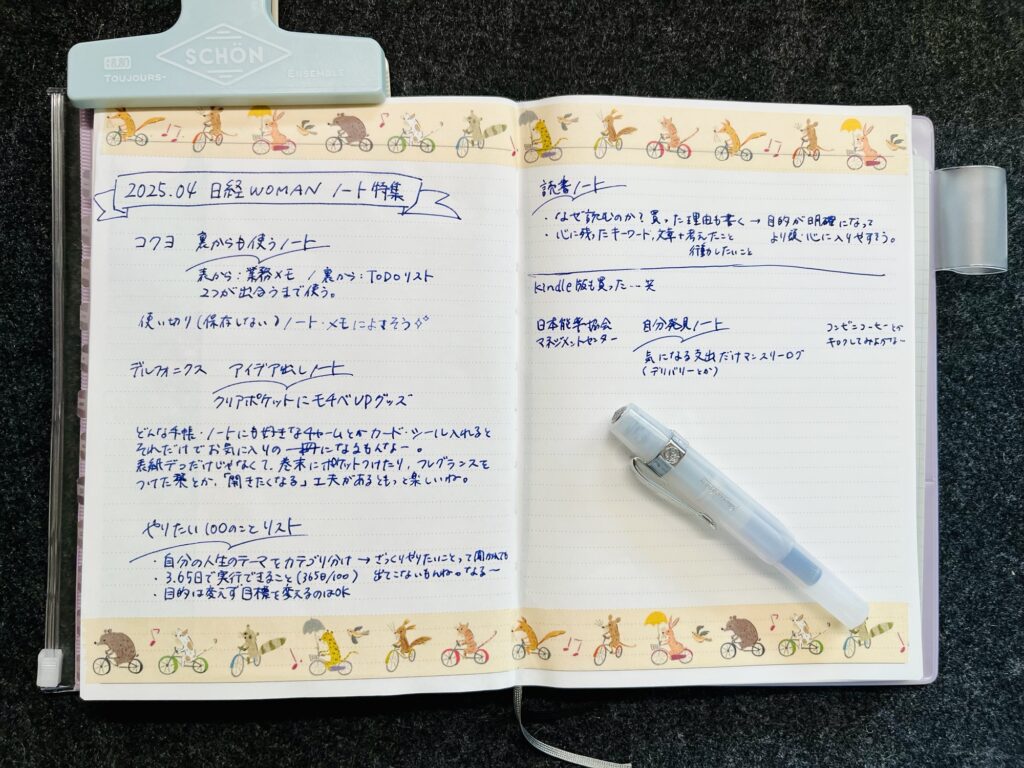 SCHÖN
TOUJOURS
ENSEMBLE
2025.04 日経WOMAN ノート特集
コクヨ 裏からも使うノート
表から:業務メモ / 裏から:TODOリスト
2つが出合うまで使う。
使い切り(保存しない)ノート・メモによすそう
デルフォニックス アイデア出しノート
クリアポケットにモチベUPグッズ
どんな手帳・ノートにも好きなチャームとかカード・シール入れると
それだけでお気に入りの一冊になるもんなー。
表紙デコだけじゃなくて、巻末にポケットつけたり、フレグランスを
つけた栞とか、「開きたくなる」工夫があるともっと楽しいね。
やりたい100のことリスト
・自分の人生のテーマでカテゴリ分け → ざっくりやりたいことって聞かれても
・3.65日で実行できること(365日/100) 出てこないもんね。なる〜
・目的は変えず目標を変えるのはOK
読書ノート
・なぜ読むのか?買った理由も書く → 目的が明確になって
・心に残ったキーワード、文章+考えたこと より頭・心に入りやすそう。
行動したいこと
Kindle版も買った…笑
日本能率協会 自分発見ノート コンビニコーヒーとか
マネジメントセンター キロクしてみようかな〜
気になる支出だけマンスリーログ
(デリバリーとか)